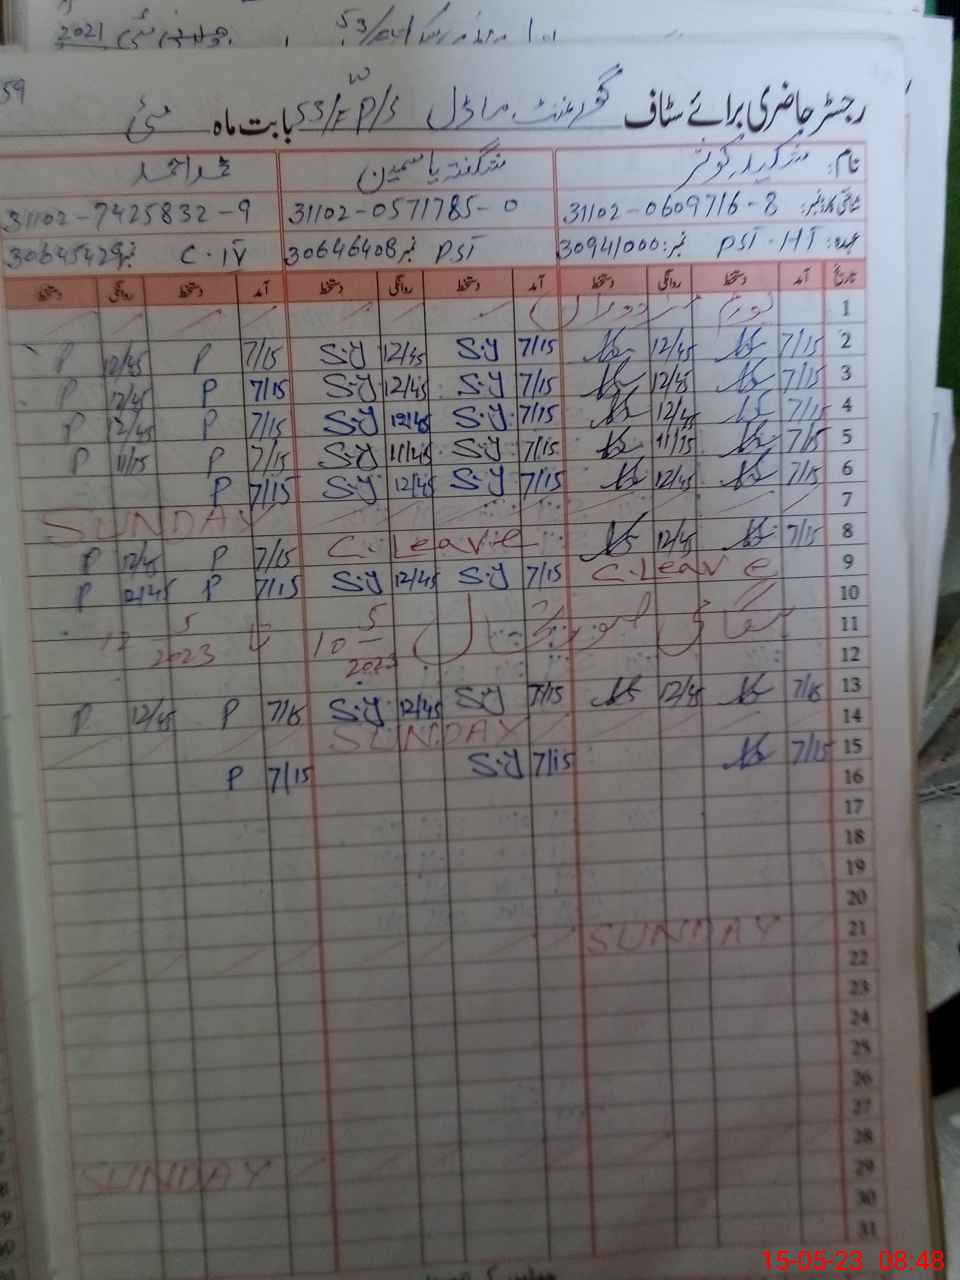 2021
53/
59
رجسٹر حاضری برائے سٹاف گورنمنٹ ماڈل 53/F W P/S بابت ماہ مئی
نام: شگفتہ یاسمین
شناختی کارڈ نمبر: 31102-0609716-8 31102-0571785-0 31102-7425832-9
عہدہ: PST.HT نمبر: 30941000 PST نمبر 30646408 C.IV نمبر 30645429
تاریخ آمد دستخط روانگی دستخط آمد دستخط روانگی دستخط آمد دستخط روانگی دستخط
1 یوم مزدوراں
2 7/15 12/45 7/15 S.Y 12/45 S.Y 7/15 P 12/45 P
3 7/15 12/45 7/15 S.Y 12/45 S.Y 7/15 P 12/45 P
4 7/15 12/45 7/15 S.Y 12/45 S.Y 7/15 P 12/45 P
5 7/15 11/15 7/15 S.Y 11/45 S.Y 7/15 P 11/15 P
6 7/15 12/45 7/15 S.Y 12/45 S.Y 7/15 P
7 SUNDAY
8 7/15 12/45 C. Leavie 7/15 P 12/45 P
9 C.Leave 7/15 S.Y 12/45 S.Y 7/15 P 12/45 P
10
11 10 5/2023 تا 12 5/2023
12
13 7/15 12/45 7/15 S.Y 12/45 S.Y 7/15 P 12/45 P
14 SUNDAY
15 7/15 7/15 S.Y 7/15 P
16
17
18
19
20
21 SUNDAY
22
23
24
25
26
27
28 SUNDAY
29
30
31
15-05-23 08:48